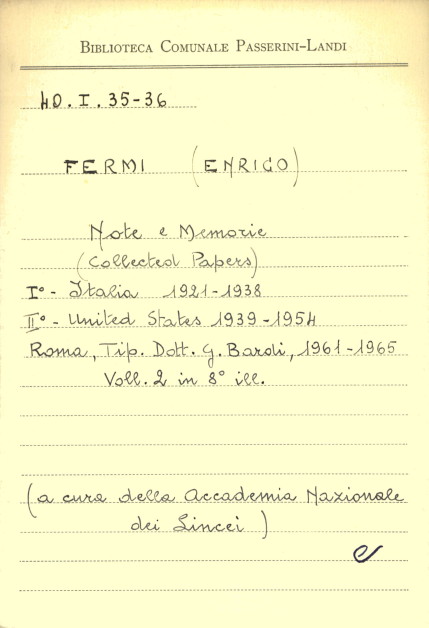 BIBLIOTECA COMUNALE PASSERINI-LANDI
40.I.35-36
FERMI (ENRICO)
Note e Memorie
(Collected Papers)
I° - Italia 1921-1938
II° - United States 1939-1954
Roma, Tip. Dott. G. Bardi, 1961-1965
Voll. 2 in 8° ill.
(a cura della Accademia Nazionale
dei Lincei)
e